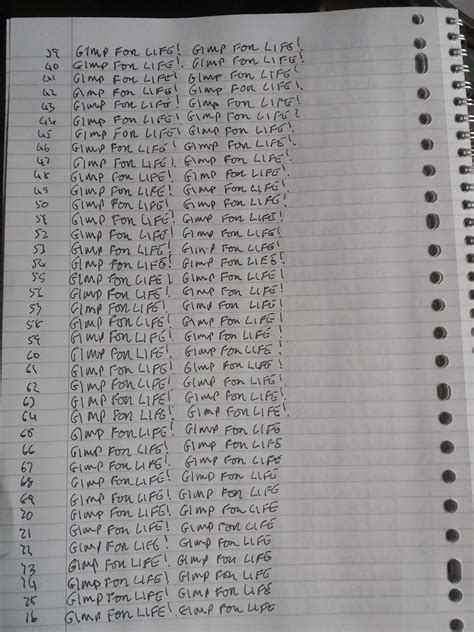 39 GIMP FOR LIFE! GIMP FOR LIFE!
40 GIMP FOR LIFE! GIMP FOR LIFE!
41 GIMP FOR LIFE! GIMP FOR LIFE!
42 GIMP FOR LIFE! GIMP FOR LIFE!
43 GIMP FOR LIFE! GIMP FOR LIFE!
44 GIMP FOR LIFE! GIMP FOR LIFE!
45 GIMP FOR LIFE! GIMP FOR LIFE!
46 GIMP FOR LIFE! GIMP FOR LIFE!
47 GIMP FOR LIFE! GIMP FOR LIFE!
48 GIMP FOR LIFE! GIMP FOR LIFE!
49 GIMP FOR LIFE! GIMP FOR LIFE!
50 GIMP FOR LIFE! GIMP FOR LIFE!
51 GIMP FOR LIFE! GIMP FOR LIFE!
52 GIMP FOR LIFE! GIMP FOR LIFE!
53 GIMP FOR LIFE! GIMP FOR LIFE!
54 GIMP FOR LIFE! GIMP FOR LIFE!
55 GIMP FOR LIFE! GIMP FOR LIFE!
56 GIMP FOR LIFE! GIMP FOR LIFE!
57 GIMP FOR LIFE! GIMP FOR LIFE!
58 GIMP FOR LIFE! GIMP FOR LIFE!
59 GIMP FOR LIFE! GIMP FOR LIFE!
60 GIMP FOR LIFE! GIMP FOR LIFE!
61 GIMP FOR LIFE! GIMP FOR LIFE!
62 GIMP FOR LIFE! GIMP FOR LIFE!
63 GIMP FOR LIFE! GIMP FOR LIFE!
64 GIMP FOR LIFE! GIMP FOR LIFE!
65 GIMP FOR LIFE! GIMP FOR LIFE
66 GIMP FOR LIFE! GIMP FOR LIFE
67 GIMP FOR LIFE! GIMP FOR LIFE
68 GIMP FOR LIFE! GIMP FOR LIFE
69 GIMP FOR LIFE! GIMP FOR LIFE
70 GIMP FOR LIFE! GIMP FOR LIFE
71 GIMP FOR LIFE! GIMP FOR LIFE
72 GIMP FOR LIFE! GIMP FOR LIFE
73 GIMP FOR LIFE! GIMP FOR LIFE
74 GIMP FOR LIFE! GIMP FOR LIFE
75 GIMP FOR LIFE! GIMP FOR LIFE
76 GIMP FOR LIFE! GIMP FOR LIFE